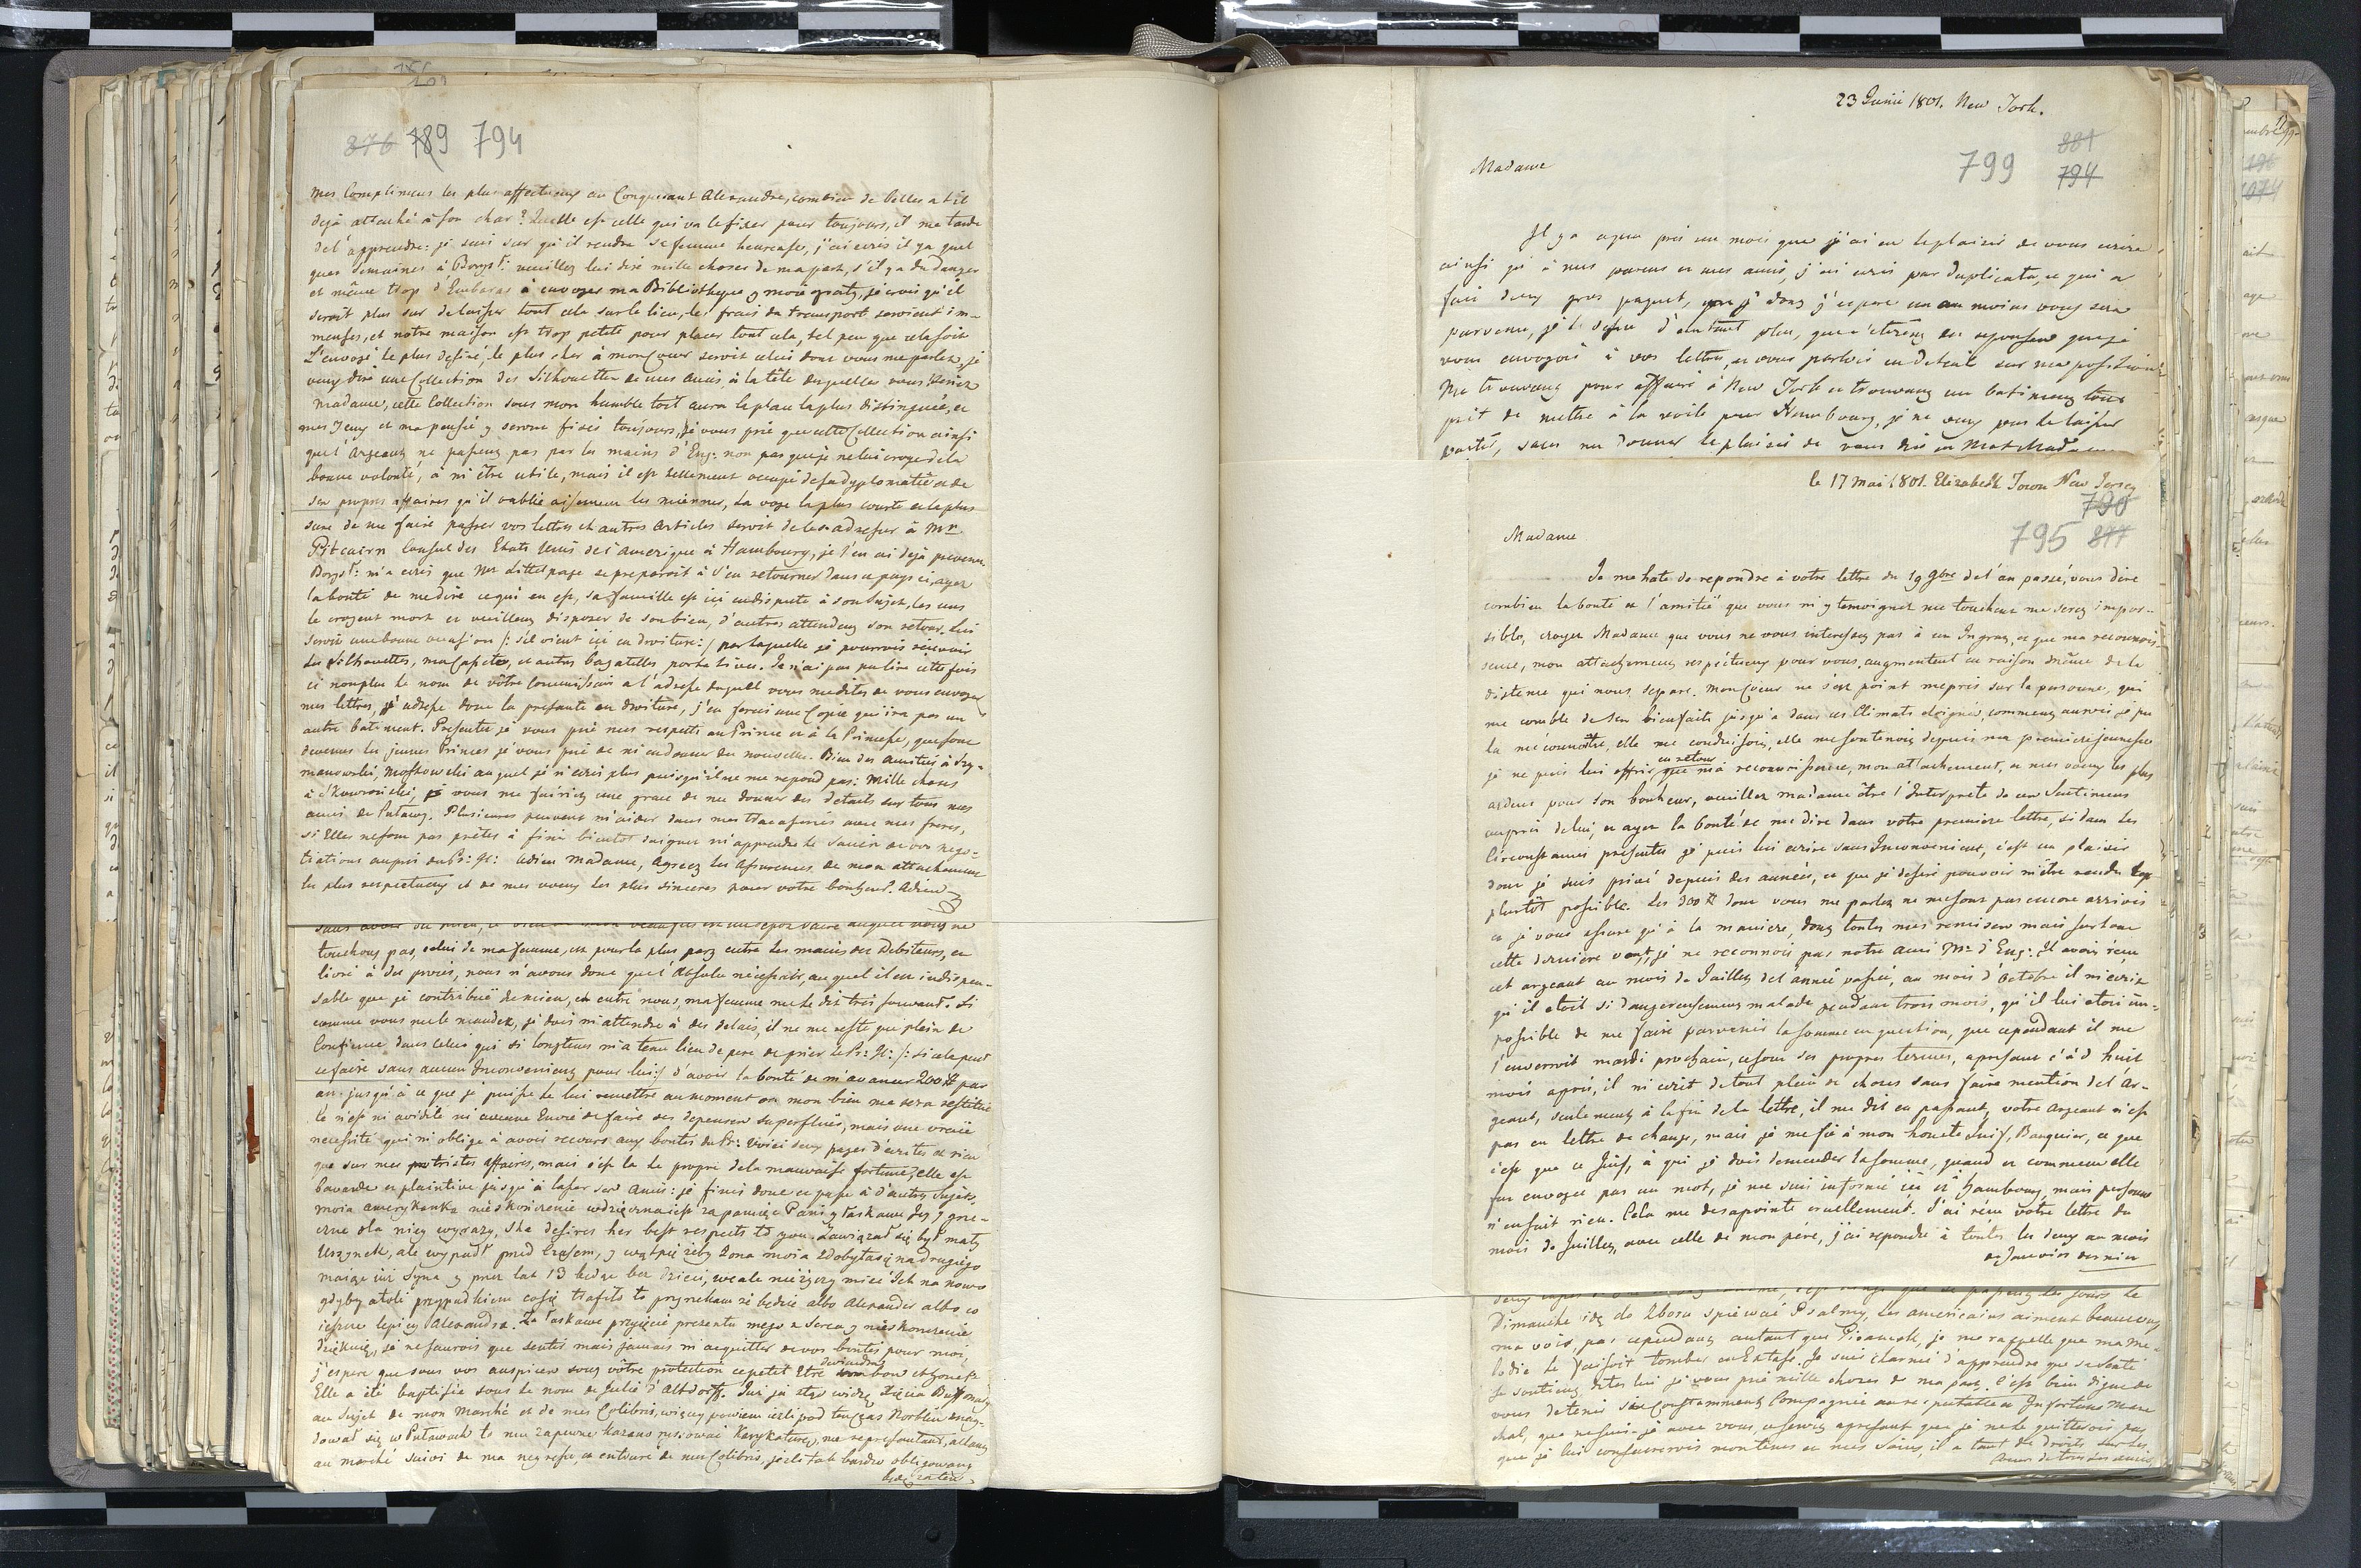 876 789 794
mes Complimens les plus affectueux au Conquerant Alexandre, combien de belles at il
dejà attaché à son char? Quelle est celle qui va le fixer pour toujours, il me tarde
de l'apprendre: je suis sur qu'il rendra sa femme heureuse, j'ai ecris il ya quel
ques semaines à Borzt: veuillez lui dire mille choses de ma part, s'il ya du danger
et même trop d'Embaras à envoyer ma Bibliotheque y moie graty, je crois qu'il
seroit plus sur de laisser tout cela sur le lieu, les frais du transport seroient im-
menses, et notre maison est trop petite pour placer tout cela, tel peu que cela soit
L'envoyé le plus desiré, le plus cher à mon Coeur seroit celui dont vous me parlez, je
veux dire une Collection des Silhouettes de mes amis, à la tête desquelles vous seriez
Madame, cette Collection sous mon humble toit aura la place la plus distinguée, et
mes Yeux et ma pensée y seront fixés toujours, je vous prie que cette Collection ainsi
que l'Argeant ne passent pas par les mains d'Eng: non pas que je ne lui croye de la
bonne volonté, à m'être utile, mais il est tellement occupé de sa dyplomatie et de
ses propres affaires qu'il oublie aisement les miennes, La voye la plus courte et la plus
sure de me faire passer vos lettres et autres Articles seroit de les adresser à Mr
Pitcairn Consul des Etats Unis de l'Amerique à Hambourg, je l'en ai dejà prevenu
Borzt: m'a ecris que Mr Littelpage se preparoit à s'en retourner dans ce pays ci, ayez
la bonté de me dire ce qui en est, sa famille est ici en dispute à son sujet, les uns
le croyent mort et veuillent disposer de son bien, d'autres attendent son retour. Lui
seroit une bonne occasion /: s'il vient ici en droiture :/ par laquelle je pourrois recevoir
les Silhouettes, ma Cassette, et autres bagatelles portatives. Je n'ai pas pu lire cette fois
ci non plus le nom de vôtre Commissaire a l'adresse duquel vous me dites de vous envoyer
mes lettres, j'adresse donc la presente en droiture, j'en ferai une Copie qui ira par un
autre batiment. Presentez je vous prie mes respects au Prince et à la Princesse, que font
devenus les jeunes Princes je vous prie de m'en donner des nouvelles. Bien des amitiés à Szy-
manowski, Mostowski auquel je n'ecris plus puisqu'il ne me repond pas: Mille choses
vous me fairiez une grace de me donner des details sur tous mes
amis de Pulawy. Plusieurs peuvent m'aider dans mes tracasseries avec mes freres,
si Elles ne sont pas prêtes à finir bientot daignez m'apprendre le succès de vos nego-
tiations auprès du Pr: Gl: Adieu Madame, Agreez les Assurances de mon attachement
le plus respectueux et de mes voeux les plus sinceres pour votre bonheur. Adieu
touchons pas, celui de ma femme, est pour la plus part entre les mains des Debiteurs, et
livré à des procès, nous n'avons donc que l'Absolu necessaire, auquel il est indispen-
sable que je contribuë du mien, et entre nous, ma femme me le dit très souvent. Si
comme vous me le mandez, je dois m'attendre à des delais, il ne me reste que plein de
Confiance dans Celui qui si longtems m'a tenu lieu de pere de prier le Pr: Gl: /: si cela peut
ce faire sans aucun Inconvenient pour lui :/ d'avoir la bonté de m'avancer 200 # par
an jusqu'à ce que je puisse le lui remettre au moment où mon bien me sera restitué
ce n'est ni avidité ni aucune Envie de faire des depenses superflues, mais une vraie
necessité qui m'oblige à avoir recours aux bontés du Pr: Voici deux pages d'ecrites et rien
que sur mes tristes affaires, mais c'est la le propre de la mauvaise fortune, elle est
bavarde et plaintive jusqu'à lasser ses Amis: je finis donc et passe à d'autres Sujets.
moia amerykanka nieskończenie wdzięczna iest za pamięć Pani y łaskawe Jey y grze-
czne dla niey wyrazy, She desires her best respects to you. Zawiązał się był mały
Uszynek, ale wypadł przed czasem, y wątpię żeby Żona moia zdobyła się na drugiego
maiąc iuż Syna y przez lat 13 będąc bez dzieci, wcale nieżyczy mieć Ich na nowo
gdyby atoli przypadkiem cosię trafiło to przyrzekam że będzie albo Alexander albo co
ieszcze lepiey Alexandra. Za łaskawe przyięcie prezentu mego z Serca y nieskończenie
dziękuię, je ne saurois que sentir mais jamais m'acquitter de vos bontés pour moi,
j'espere que sous vos auspices sous vôtre protection ce petit Etre deviendra bon et honete
Elle a été baptisée sous le nom de Julie d'Altdorff. Już ja stąd widzę
au Sujet de mon Marché et de mes Colibris, więcey powiem iezli pod ten czas Norblin znay-
dował się w Puławach to mu zapewne kazano rysować karykaturę, me representant, allant
au marché suivi de ma negresse, et entouré de mes Colibris, jezli tak bardzo obligowany
będę za ten
23 Junii 1801. New York.
799 881
794
Madame
Il y a apeu près un mois que j'ai eu le plaisir de vous ecrire
ainsi qu'à mes parens et mes amis, j'ai ecris par duplicata, ce qui a
fait deux gros paquets, dont j'espere un au moins vous sera
parvenu, je le desire d'autant plus, que c'etoient des reponses que je
vous envoyois à vos lettres, et vous parlois en detail sur ma position.
Me trouvant pour affaire à New York et trouvant un batiment tout
prêt de mettre à la voile pour Hambourg, je ne veux pas le laisser
partir, sans me donner le plaisir de vous dire un Mot Madame
le 17 Mai 1801. Elizabeth Town New Jersey
790
795 877
Madame
Je me hate de repondre à votre lettre du 19 9bre de l'an passé, vous dire
combien la bonté et l'amitié que vous m'y temoignez me touchent me serez impos-
sible, croyez Madame que vous ne vous interessez pas à un Ingrat, et que ma reconnois-
sence, mon attachement respectueux pour vous, augmentent en raison même de la
distence qui nous separe. Mon Coeur ne s'est point mepris sur la personne, qui
me comble de ses bienfaits jusqu'a dans ces Climats eloignés, comment aurois je pu
la méconnoître, elle me conduisoit, elle me soutenoit depuis ma premiere jeunesse
je ne puis lui offrir en retour que ma reconnoissance, mon attachement, et mes voeux les plus
ardens pour son bonheur, veuillez madame être l'Interprete de ces Sentimens
auprès de lui, et ayez la bonté de me dire dans votre premiere lettre, si dans les
Circonstances presentes je puis lui ecrire sans Inconvenient, c'est un plaisir
dont je suis privé depuis des années, et que je desire pouvoir m'être rendu le
plustôt possible. Les 300 # dont vous me parlez ne me sont pas encore arrivés
et je vous assure qu'à la maniere, dont toutes mes remises mais surtout
cette derniere vont, je ne reconnois pas notre ami Mr d'Eng: Il avoit reçu
cet argeant au mois de Juillet de l'année passée, au mois d'Octobre il m'ecrit
qu'il etoit si dangereusement malade pendant trois mois, qu'il lui etoit im-
possible de me faire parvenir la somme en question, que cependant il me
l'enverroit mardi prochain, ce sont ses propres termes, apresant c'à d huit
mois après, il m'ecrit de tout plein de choses sans faire mention de l'Ar-
geant, seulement à la fin de la lettre, il me dit en passant, votre Argeant n'est
pas en lettre de change, mais je me fie à mon honete Juif, Banquier, ce que
c'est que ce Juif, à qui je dois demender la somme, quand et comment elle
fut envoyee pas un mot, je me suis informé ici et Hambourg, mais personne
n'en sait rien. Cela me desapointe cruellement. J'ai reçu votre lettre du
mois de Juillet, avec celle de mon pére, j'ai repondu à toutes les deux au mois
de Janvier dernier
Dimanche idę do Zboru spiewać Psalmy, les americains aiment beaucoup
ma voix, pas cependant autant que Pisarek, je me rappelle que ma me-
lodie le faisoit tomber en Extase. Je suis charmé d'apprendre que sa santé
se soutient, dites lui je vous prie mille choses de ma part. C'est bien digne de
vous de tenir si Constamment Compagnie au respectable et Infortuné Mare
chal, que ne suis-je avec vous, apresant que je ne le quitterois pas
que je lui consacrerois mon tems et mes soins, il a tant de droits sur les
coeurs de tous ses amis